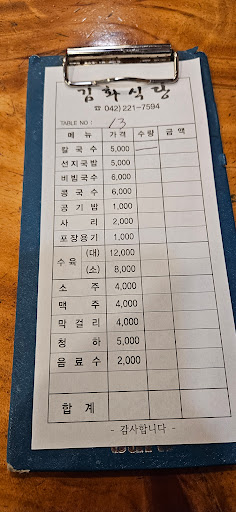 김화식당
☎ 042) 221-7594
TABLE NO : 13
메 뉴 가 격 수 량 금 액
칼 국 수 5,000
선지국밥 5,000
비빔국수 6,000
콩 국 수 6,000
공 기 밥 1,000
사 리 2,000
포장용기 1,000
수 육 (대) 12,000
(소) 8,000
소 주 4,000
맥 주 4,000
막 걸 리 4,000
청 하 5,000
음 료 수 2,000
합 계
- 감사합니다 -